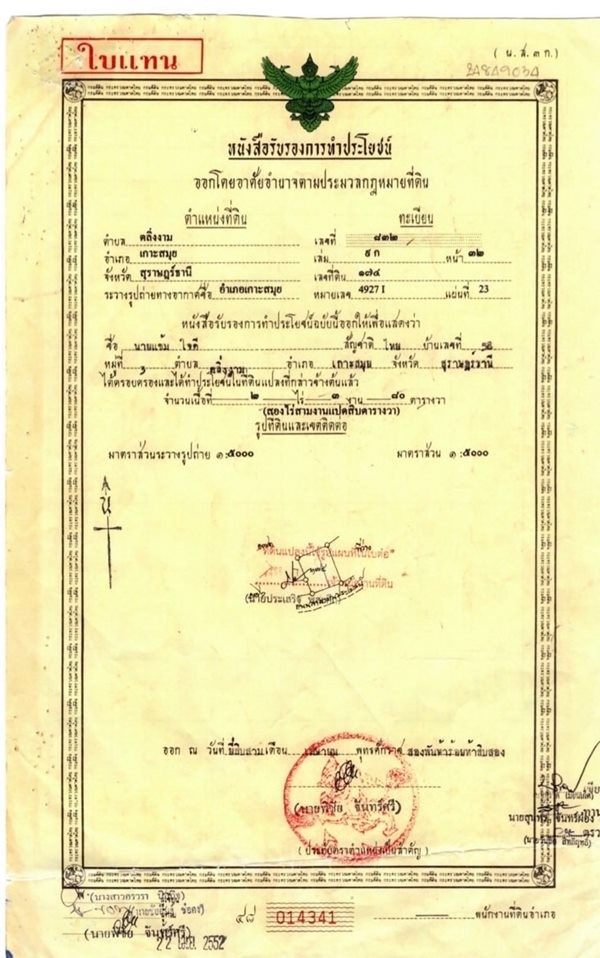 ใบแทน
( น.ส.๓ ก.)
หนังสือรับรองการทำประโยชน์
ออกโดยอาศัยอำนาจตามประมวลกฎหมายที่ดิน
ตำแหน่งที่ดิน ทะเบียน
ตำบล ตลิ่งงาม เลขที่ ๘๓๒
อำเภอ เกาะสมุย เล่ม ๙ ก หน้า ๓๒
จังหวัด สุราษฎร์ธานี เลขที่ดิน ๑๗๔
ระวางรูปถ่ายทางอากาศชื่อ อำเภอเกาะสมุย หมายเลข 4927 I แผ่นที่ 23
หนังสือรับรองการทำประโยชน์ฉบับนี้ออกให้เพื่อแสดงว่า
ชื่อ นายแช้ม ใจดี สัญชาติ ไทย บ้านเลขที่ 58
หมู่ที่ 3 ตำบล ตลิ่งงาม อำเภอ เกาะสมุย จังหวัด สุราษฎร์ธานี
ได้ครอบครองและได้ทำประโยชน์ในที่ดินแปลงที่กล่าวข้างต้นแล้ว
จำนวนเนื้อที่ ๒ ไร่ ๓ งาน ๘๐ ตารางวา
(สองไร่สามงานแปดสิบตารางวา)
รูปที่ดินและเขตติดต่อ
มาตราส่วนระวางรูปถ่าย ๑:๕๐๐๐ มาตราส่วน ๑:๕๐๐๐
น
"ที่ดินแปลงนี้ใช้รูปแผนที่ในใบต่อ"
ออก ณ วันที่ ยี่สิบสาม เดือน เมษายน พุทธศักราช สองพันห้าร้อยห้าสิบสอง
(นายพิชัย จันทร์ศรี)
( ประทับตราตำแหน่งเป็นสำคัญ )
(นายพิชัย จันทร์ศรี)
22 เม.ย. 2552
๔๘ 014341
พนักงานที่ดินอำเภอ